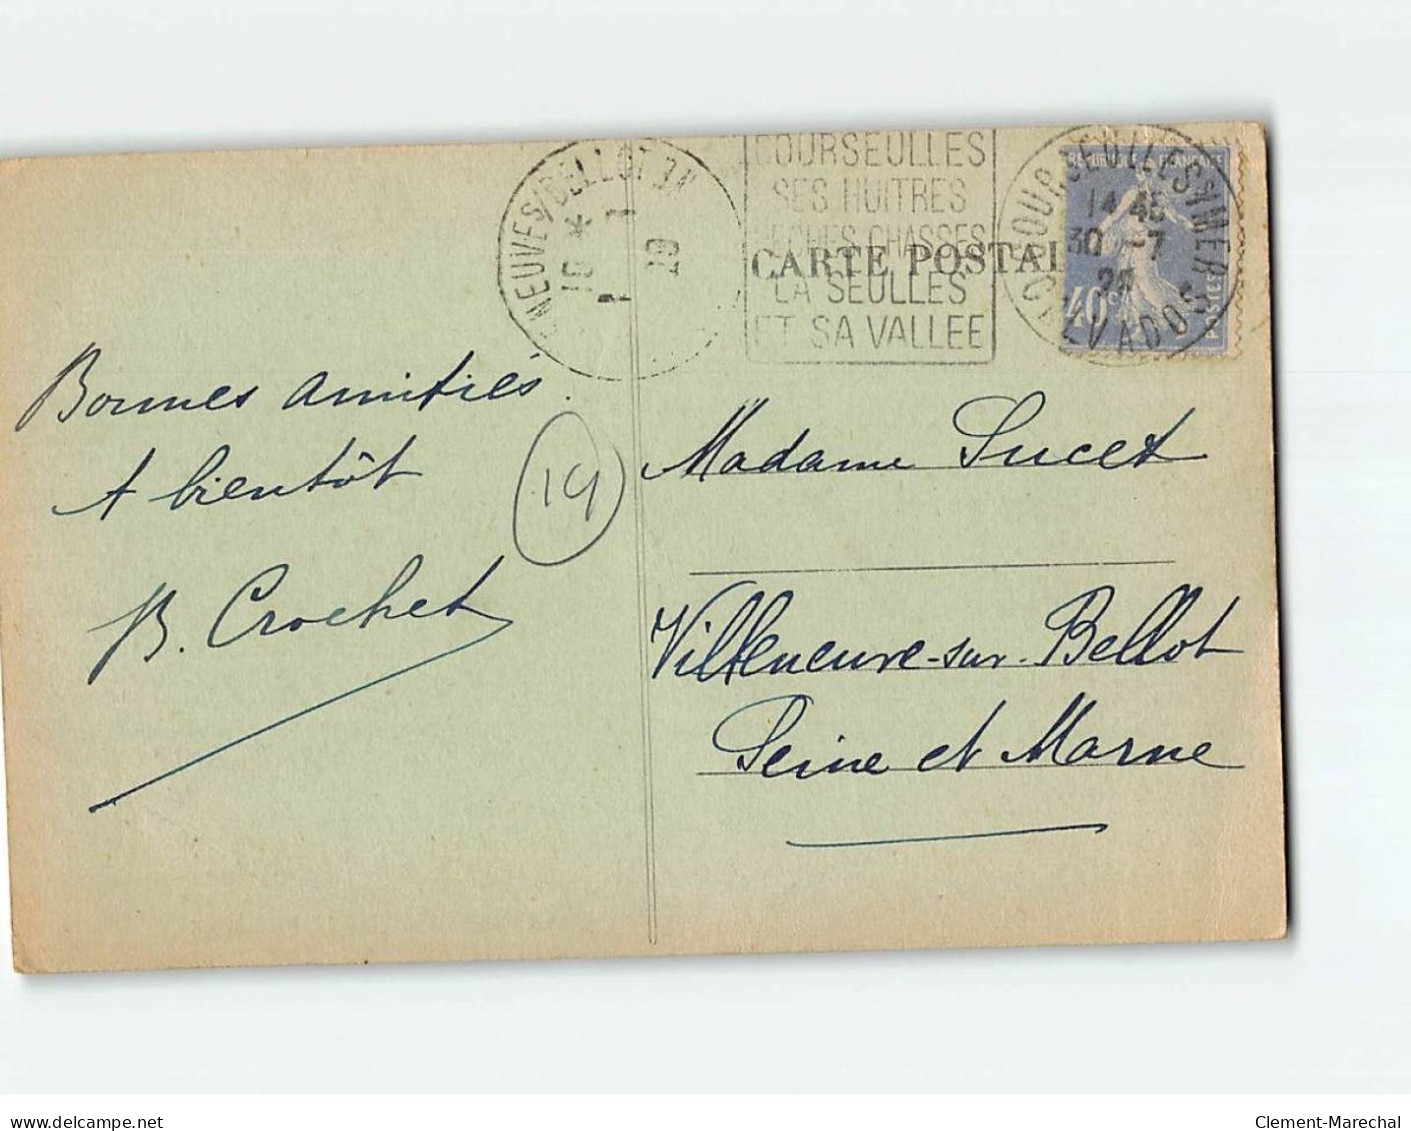 COURSEULLES
SES HUITRES
PECHES CHASSES
LA SEULLES
ET SA VALLEE
CARTE POSTAL
COURSEULLES S/MER
14 45
30 -7
CALVADOS
40c
POSTES
NEUVES/BELLOT
19 *
1
29
Bonnes amitiés.
A bientôt
B. Crochet
19
Madame Lucet
Villeneuve-sur-Bellot
Seine et Marne
www.delcampe.net
Clement-Marechal